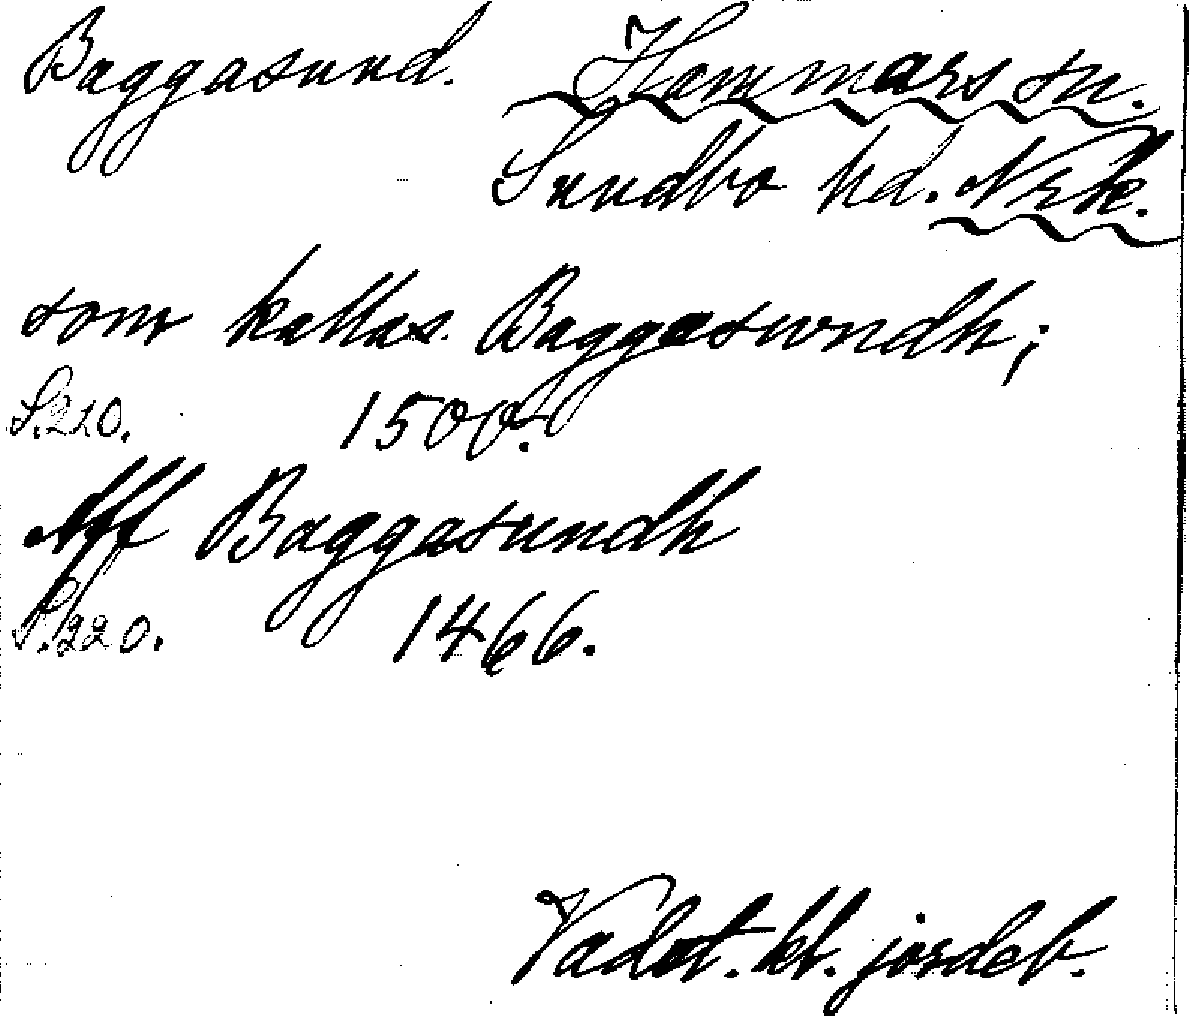 Baggasund. Hammars sn.
Sundbo hd. Nrk.
som kallas Baggaswndh;
S. 220. 1500.
Aff Baggasundh
S. 220. 1466.
Vadst. kl. jordeb.